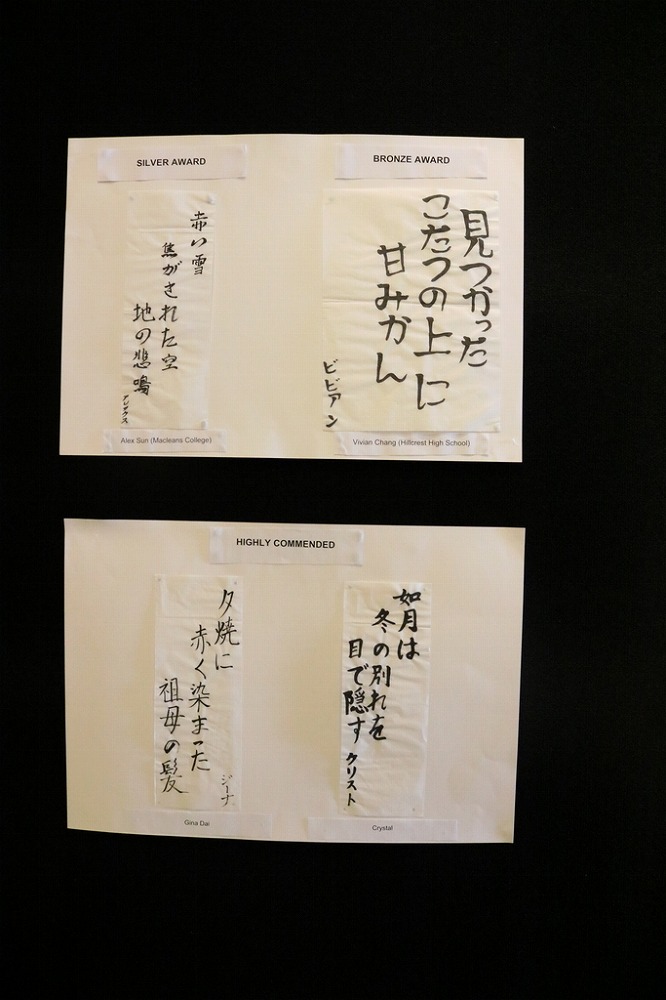 SILVER AWARD
赤い雪
焦がされた空
地の悲鳴
アレックス
Alex Sun (Macleans College)
BRONZE AWARD
見つかった
こたつの上に
甘みかん
ビビアン
Vivian Chang (Hillcrest High School)
HIGHLY COMMENDED
夕焼に
赤く染まった
祖母の髪
ジーナ
Gina Dai
如月は
冬の別れを
目で隠す
クリスト
Crystal